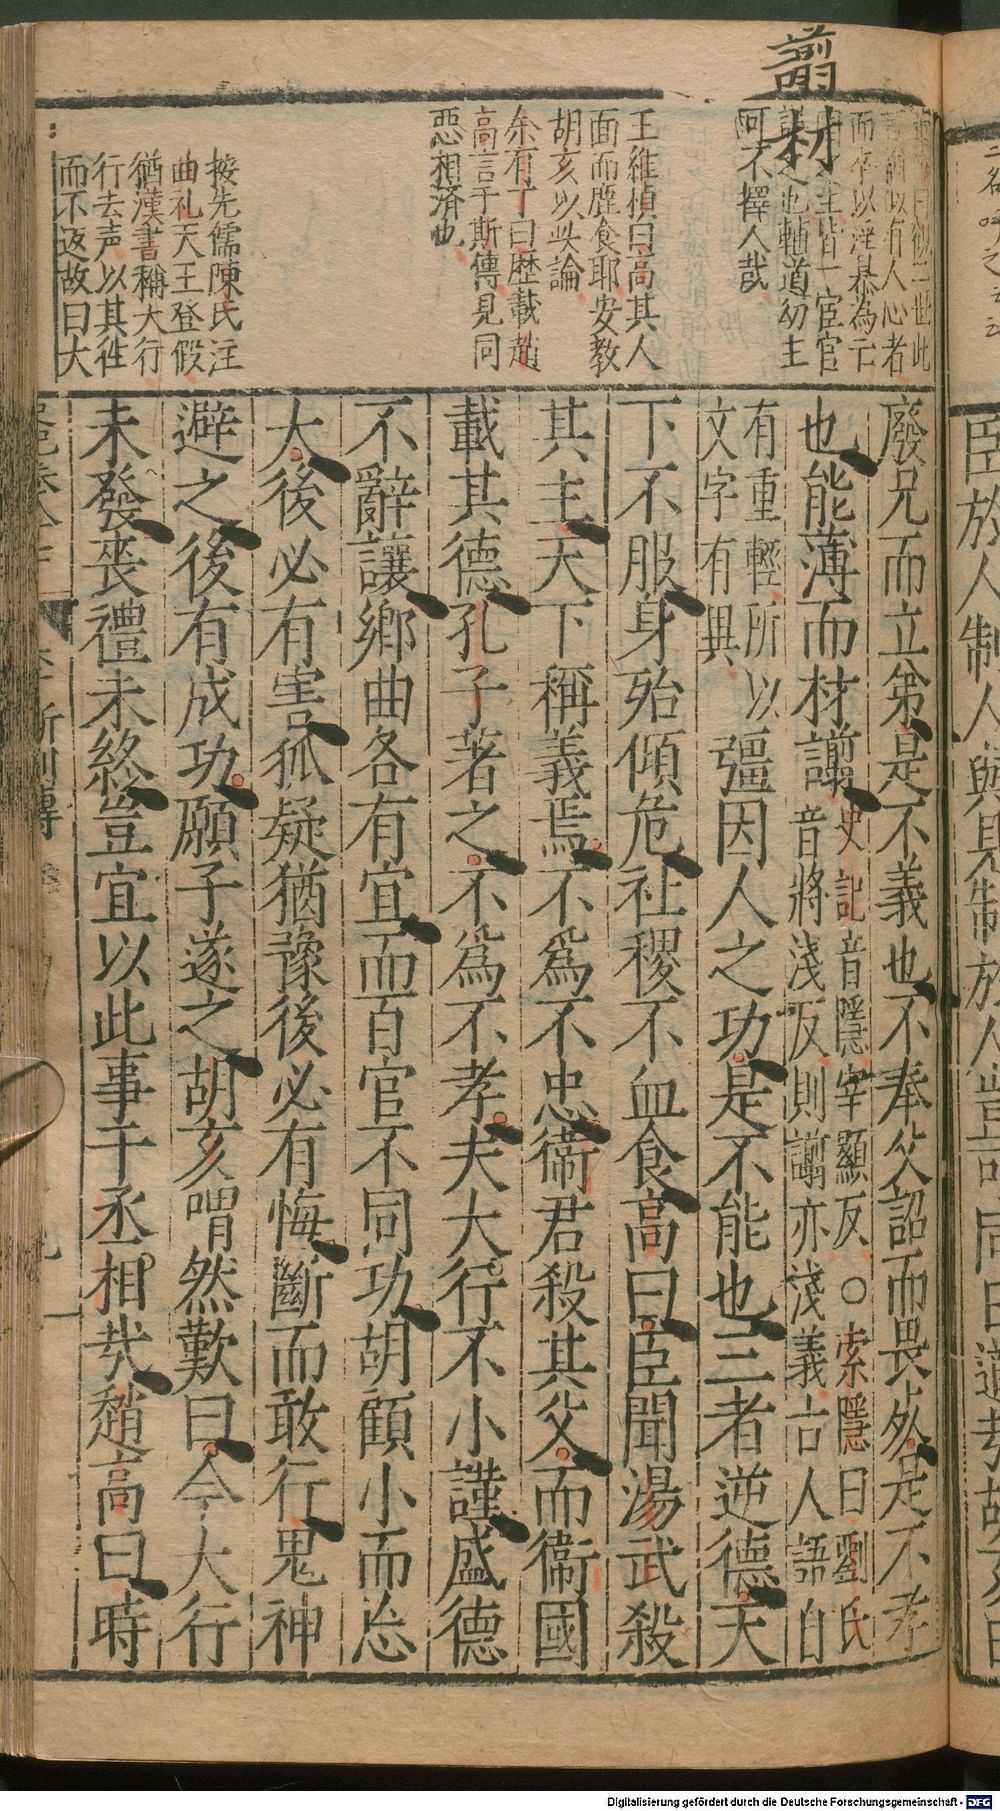 譾
材
王維楨曰高其人
面而鹿食耶安教
胡亥以此論
余有丁曰歷載趙
高言于斯傳見同
惡相済也
按先儒陳氏注
曲礼天王登假
猶漢書稱大行
行去声以其徃
而不返故曰大
阿不擇人哉
廢兄而立弟是不義也不奉父詔而畏死是不孝
也能薄而材譾史記音隱宰顯反○索隱曰劉氏
音將淺反則譾亦淺義古人語自
有重輕所以
文字有異
彊因人之功是不能也三者逆德天
下不服身殆傾危社稷不血食高曰臣聞湯武殺
其主天下稱義焉不爲不忠衛君殺其父而衛國
載其德孔子著之不爲不孝夫大行不小謹盛德
不辭讓鄉曲各有宜而百官不同功胡顧小而忘
大後必有害狐疑猶豫後必有悔斷而敢行鬼神
避之後有成功願子遂之胡亥喟然歎曰今大行
未發喪禮未終豈宜以此事干丞相哉趙高曰時
Digitalisierung gefördert durch die Deutsche Forschungsgemeinschaft - DFG